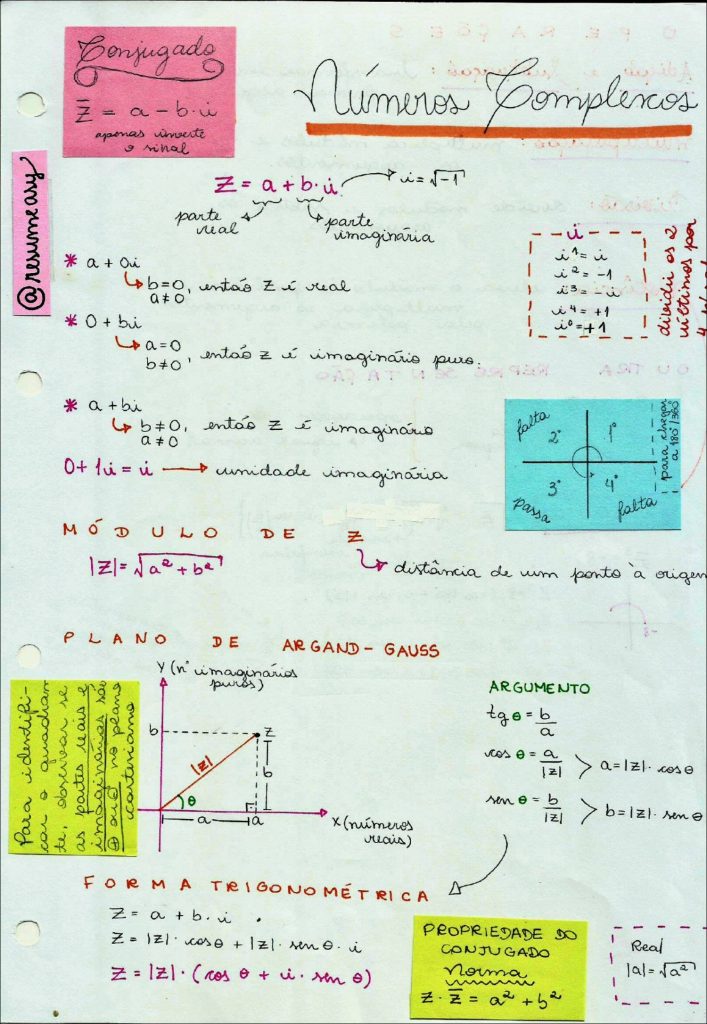 Conjugado
Z̅ = a - b·i
apenas inverte
o sinal
Números Complexos
@resumeasy
Z = a + b·i → i = √-1
parte real
parte imaginária
* a + 0i
b=0, então Z é real
a≠0
* 0 + bi
a=0, então z é imaginário puro.
b≠0
* a + bi
b≠0, então Z é imaginário
a≠0
0 + 1i = i → unidade imaginária
i
i¹ = i
i² = -1
i³ = -i
i⁴ = +1
i⁰ = +1
dividir os 2
últimos por
falta 2° 1°
3° 4°
passa falta
para chegar
a 180°/360°
MÓDULO DE Z
|Z| = √a² + b²
distância de um ponto à origem
PLANO DE ARGAND-GAUSS
Para identifi-
car o quadran-
te, observar se
as partes reais e
imaginárias são
⊕ ou ⊖ no plano
cartesiano
Y (nº imaginários
puros)
b
z
|z|
b
θ
a
a
X (números
reais)
ARGUMENTO
tg θ = b/a
cos θ = a/|z| > a = |z|· cos θ
sen θ = b/|z| > b = |z|· sen θ
FORMA TRIGONOMÉTRICA
Z = a + b·i
Z = |z|· cos θ + |z|· sen θ · i
Z = |z|· (cos θ + i · sen θ)
PROPRIEDADE DO
CONJUGADO
Norma
Z · Z̅ = a² + b²
Real
|a| = √a²